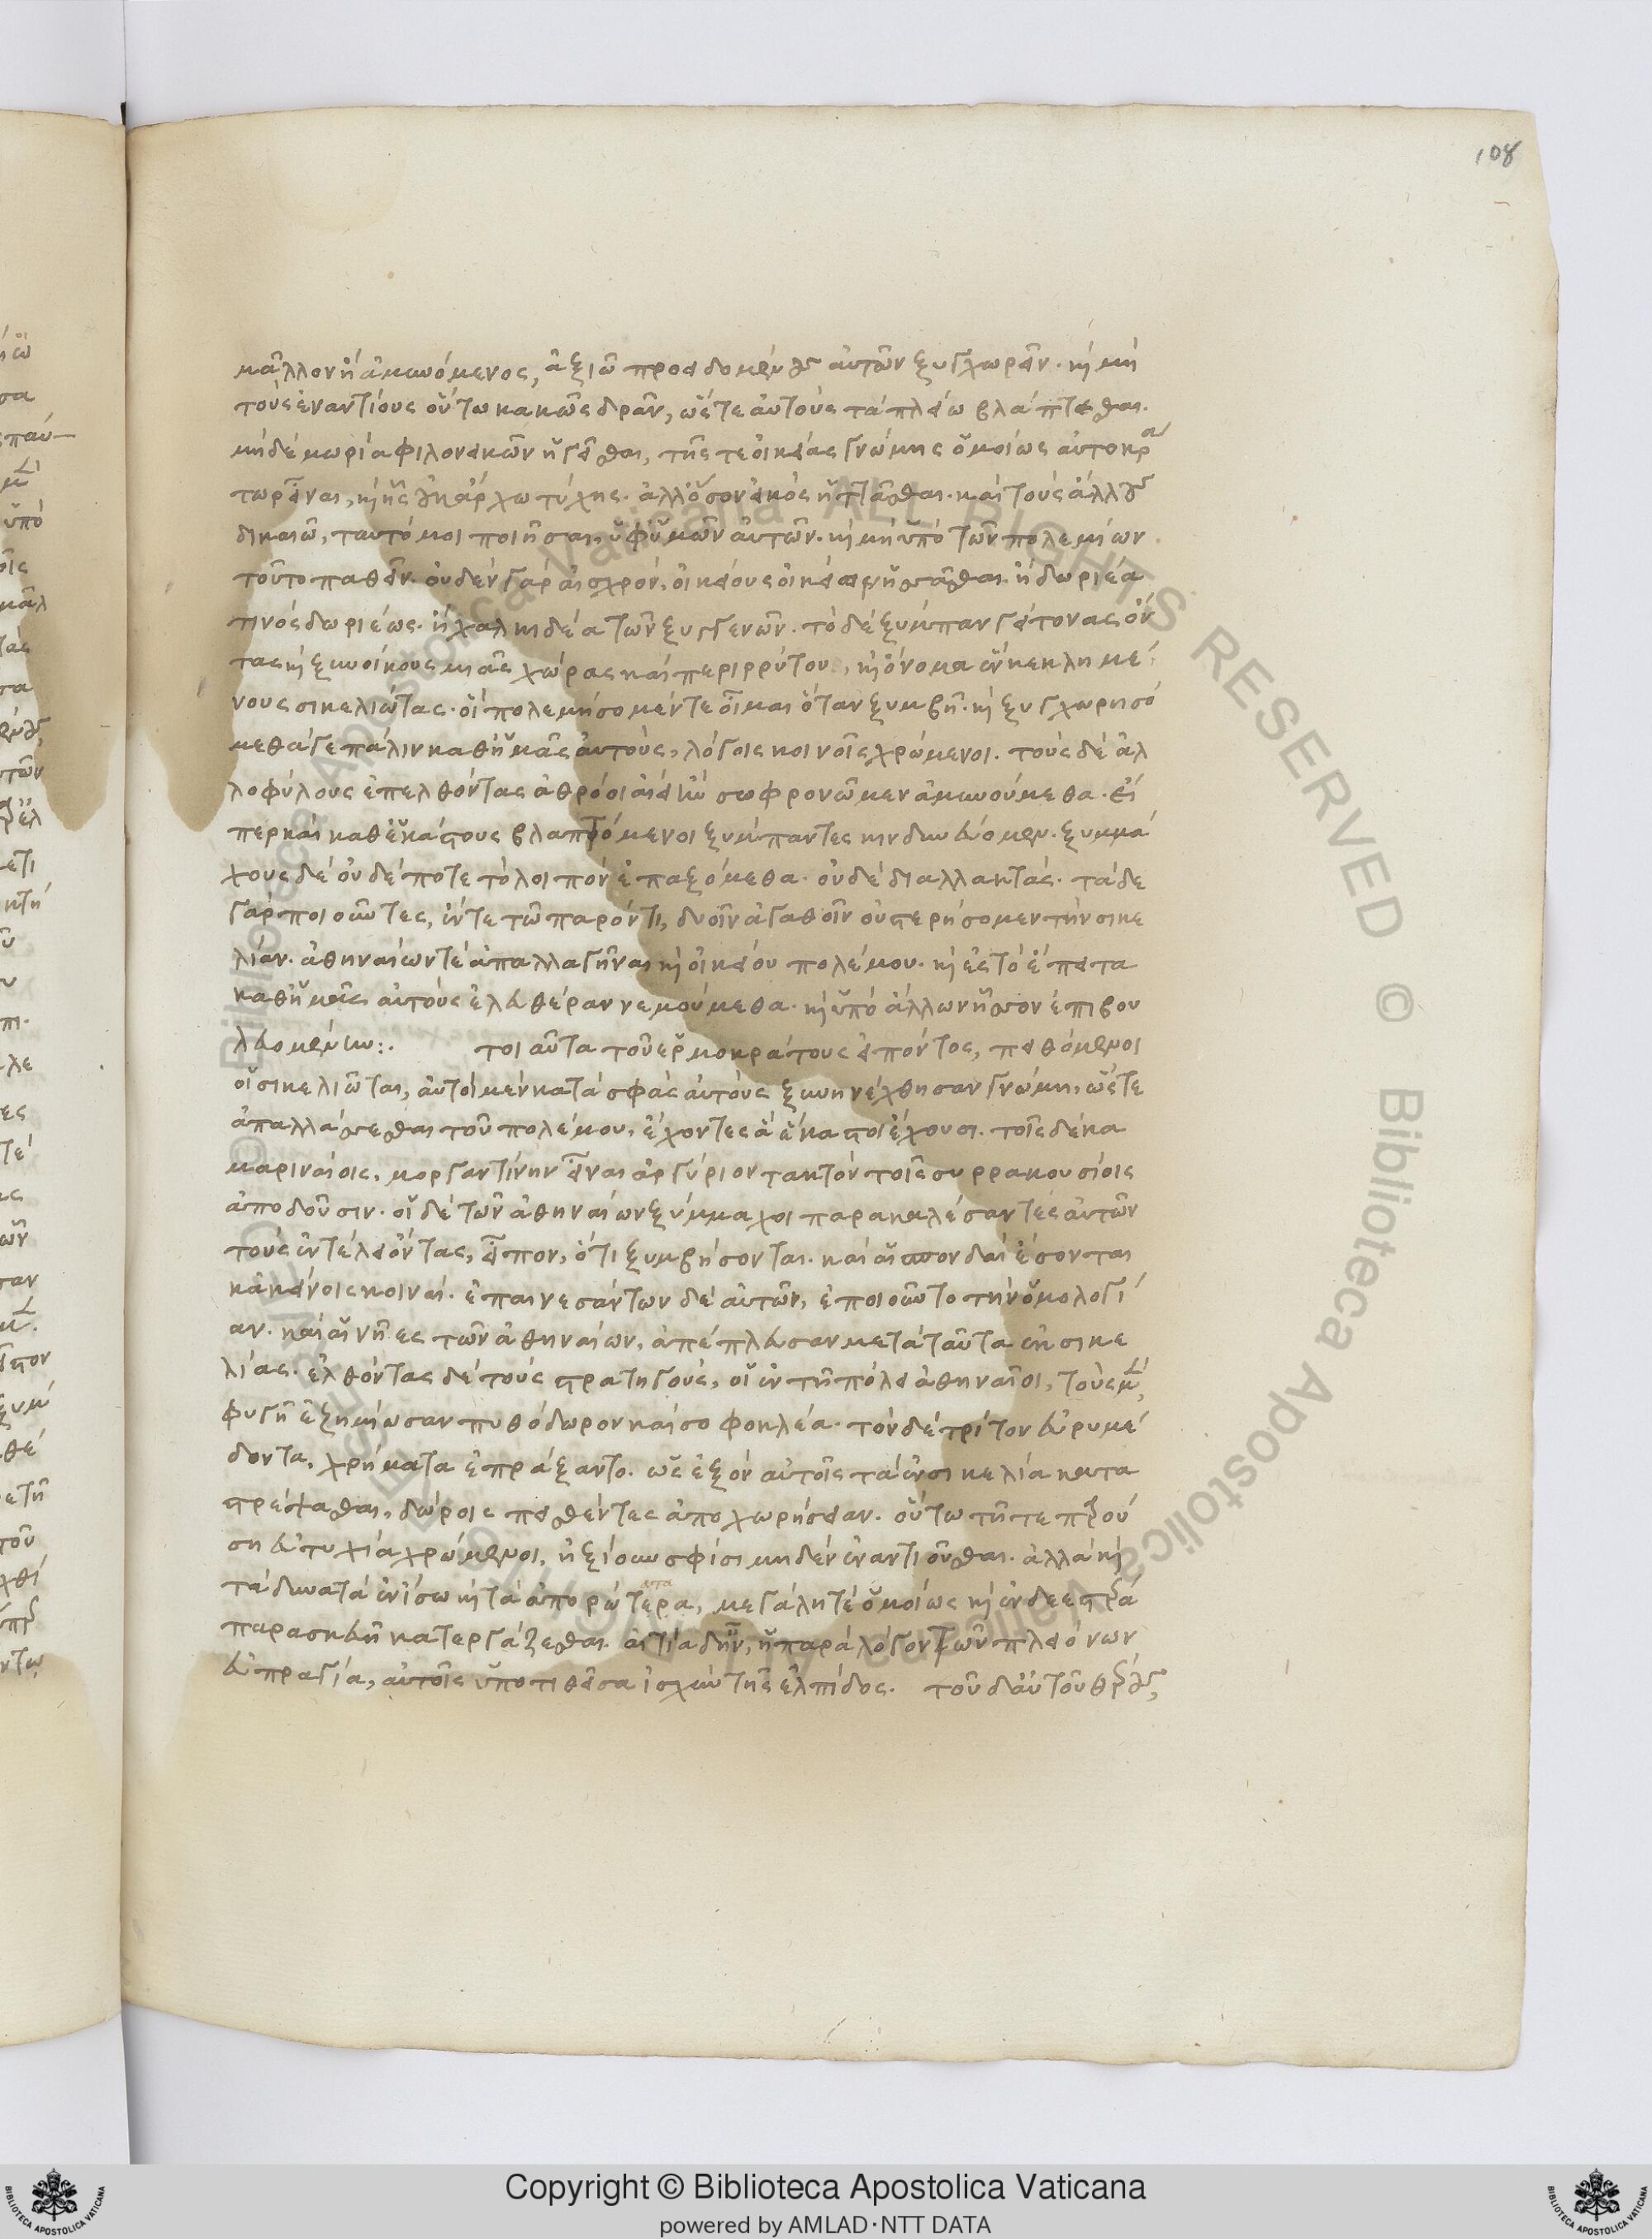 108
μᾶλλον ἢ ἀμυνόμενος, ἀξιῶ προειδομένους αὐτῶν ξυγχωρεῖν. καὶ μὴ
τοὺς ἐναντίους οὕτω κακῶς δρᾶν, ὥστε αὐτοὺς τὰ πλείω βλάπτεσθαι.
μηδὲ μωρία φιλονεικῶν ἡγεῖσθαι, τῆς τε οἰκείας γνώμης ὁμοίως αὐτοκρά
τωρ εἶναι, καὶ ἧς οὐκ ἄρχω τύχης. ἀλλ' ὅσον εἰκὸς ἡττᾶσθαι. καὶ τοὺς ἄλλους
δικαιῶ, ταυτό μοι ποιῆσαι, ὑφ' ὑμῶν αὐτῶν. καὶ μὴ ὑπὸ τῶν πολεμίων
τοῦτο παθεῖν. οὐδὲν γὰρ αἰσχρόν, οἰκείους οἰκείων ἡσσᾶσθαι. ἢ δωριέα
τινὸς δωριέως. ἢ χαλκιδέα τῶν ξυγγενῶν. τὸ δὲ ξύμπαν γείτονας ὄν
τας καὶ ξυνοίκους μιᾶς χώρας καὶ περιρρύτου, καὶ ὄνομα ἓν κεκλημέ
νους σικελιώτας. οἳ πολεμήσομέν τε οἶμαι ὅταν ξυμβῇ. καὶ ξυγχωρησό
μεθά γε πάλιν καθ' ἡμᾶς αὐτοὺς, λόγοις κοινοῖς χρώμενοι. τοὺς δὲ ἀλ
λοφύλους ἐπελθόντας ἀθρόοι αἰεὶ ἢν σωφρονῶμεν ἀμυνούμεθα. εἴ
περ καὶ καθ' ἑκάστους βλαπτόμενοι ξύμπαντες κινδυνεύομεν. ξυμμά
χους δὲ οὐδέποτε τὸ λοιπὸν ἐπαξόμεθα. οὐδὲ διαλλακτάς. τάδε
γὰρ ποιοῦντες, ἔν τε τῶ παρόντι, δυοῖν ἀγαθοῖν οὐ στερήσομεν τὴν σικε
λίαν. ἀθηναίων τὲ ἀπαλλαγῆναι καὶ οἰκείου πολέμου. καὶ ἐς τὸ ἔπειτα
καθ' ἡμᾶς αὐτοὺς ἐλευθέραν νεμούμεθα. καὶ ὑπὸ ἄλλων ἧσσον ἐπιβου
λευομένην:. τοιαῦτα τοῦ ἑρμοκράτους εἰπόντος, πειθόμενοι
οἱ σικελιῶται, αὐτοὶ μὲν κατὰ σφᾶς αὐτοὺς ξυνηνέχθησαν γνώμη, ὥστε
ἀπαλλάσσεσθαι τοῦ πολέμου, ἔχοντες ἃ ἕκαστοι ἔχουσι. τοῖς δὲ κα
μαριναίοις, μοργαντίνην εἶναι ἀργύριον τακτὸν τοῖς συρρακουσίοις
ἀποδοῦσιν. οἱ δὲ τῶν ἀθηναίων ξύμμαχοι παρακαλέσαντες αὐτῶν
τοὺς ἐν τέλει ὄντας, εἶπον, ὅτι ξυμβήσονται. καὶ αἱ σπονδαὶ ἔσονται
κἀκείνοις κοιναί. ἐπαινεσάντων δὲ αὐτῶν, ἐποιοῦντο τὴν ὁμολογί
αν. καὶ αἱ νῆες τῶν ἀθηναίων, ἀπέπλευσαν μετὰ ταῦτα ἐκ σικε
λίας. ἐλθόντας δὲ τοὺς στρατηγοὺς, οἱ ἐν τῆ πόλει ἀθηναῖοι, τοὺς μὲν,
φυγῆ ἐζημίωσαν πυθόδωρον καὶ σοφοκλέα. τὸν δὲ τρίτον εὐρυμέ
δοντα, χρήματα ἐπράξαντο. ὡς ἐξὸν αὐτοῖς τὰ ἐν σικελία κατα
στρέψασθαι, δώροις πεισθέντες ἀποχωρήσειαν. οὕτω τῆ τε παρού
ση εὐτυχία χρώμενοι, ἠξίουν σφίσι μηδὲν ἐναντιοῦσθαι. ἀλλὰ καὶ
τὰ δυνατὰ ἐν ἴσω καὶ τὰ ἀπορώτερα, μεγάλη τὲ ὁμοίως καὶ ἐνδεεστέρα
παρασκευῆ κατεργάζεσθαι. αἰτία δ' ἦν, ἡ παρὰ λόγον τῶν πλειόνων
εὐπραγία, αὐτοῖς ὑποτιθεῖσα ἰσχὺν τῆς ἐλπίδος. τοῦ δ' αὐτοῦ θέρους,
© Biblioteca Apostolica Vaticana ALL RIGHTS RESERVED © Biblioteca Apostolica Vaticana ALL RIGHTS RESERVED
Copyright © Biblioteca Apostolica Vaticana
powered by AMLAD·NTT DATA
BIBLIOTECA APOSTOLICA VATICANA
BIBLIOTECA APOSTOLICA VATICANA